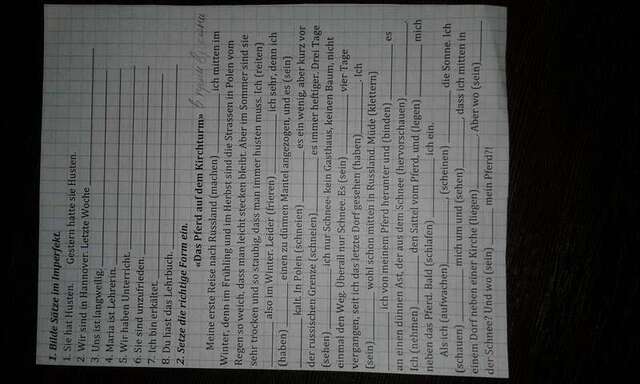 1. Bilde Sätze im Imperfekt.
1. Sie hat Husten. Gestern hatte sie Husten.
2. Wir sind in Hannover. Letzte Woche ____________
3. Uns ist langweilig. ____________
4. Maria ist Lehrerin. ____________
5. Wir haben Unterricht. ____________
6. Sie sind unzufrieden. ____________
7. Ich bin erkältet. ____________
8. Du hast das Lehrbuch. ____________
2. Setze die richtige Form ein.
«Das Pferd auf dem Kirchturm»
Meine erste Reise nach Russland (machen) ____________ ich mitten im
Winter, denn im Frühling und im Herbst sind die Strassen in Polen vom
Regen so weich, dass man leicht stecken bleibt. Aber im Sommer sind sie
sehr trocken und so staubig, dass man immer husten muss. Ich (reiten)
__________ also im Winter. Leider (frieren) ____________ ich sehr, denn ich
(haben) _________ einen zu dünnen Mantel angezogen, und es (sein)
__________ kalt. In Polen (schneien) __________ es ein wenig, aber kurz vor
der russischen Grenze (schneien)__________ es immer heftiger. Drei Tage
(sehen) ____________ ich nur Schnee- kein Gasthaus, keinen Baum, nicht
einmal den Weg. Überall nur Schnee. Es (sein) ____________ vier Tage
vergangen, seit ich das letzte Dorf gesehen (haben)__________. Ich
(sein)__________ wohl schon mitten in Russland. Müde (klettern)
____________ ich von meinem Pferd herunter und (binden) ___________ es
an einen dünnen Ast, der aus dem Schnee (hervorschauen) ______________.
Ich (nehmen) __________ den Sattel vom Pferd, und (legen) __________ mich
neben das Pferd. Bald (schlafen) ____________ ich ein.
Als ich (aufwachen)____________, (scheinen) __________ die Sonne. Ich
(schauen) __________ mich um und (sehen)__________, dass ich mitten in
einem Dorf neben einer Kirche (liegen)__________. Aber wo (sein)________
der Schnee? Und wo (sein) _______ mein Pferd?!